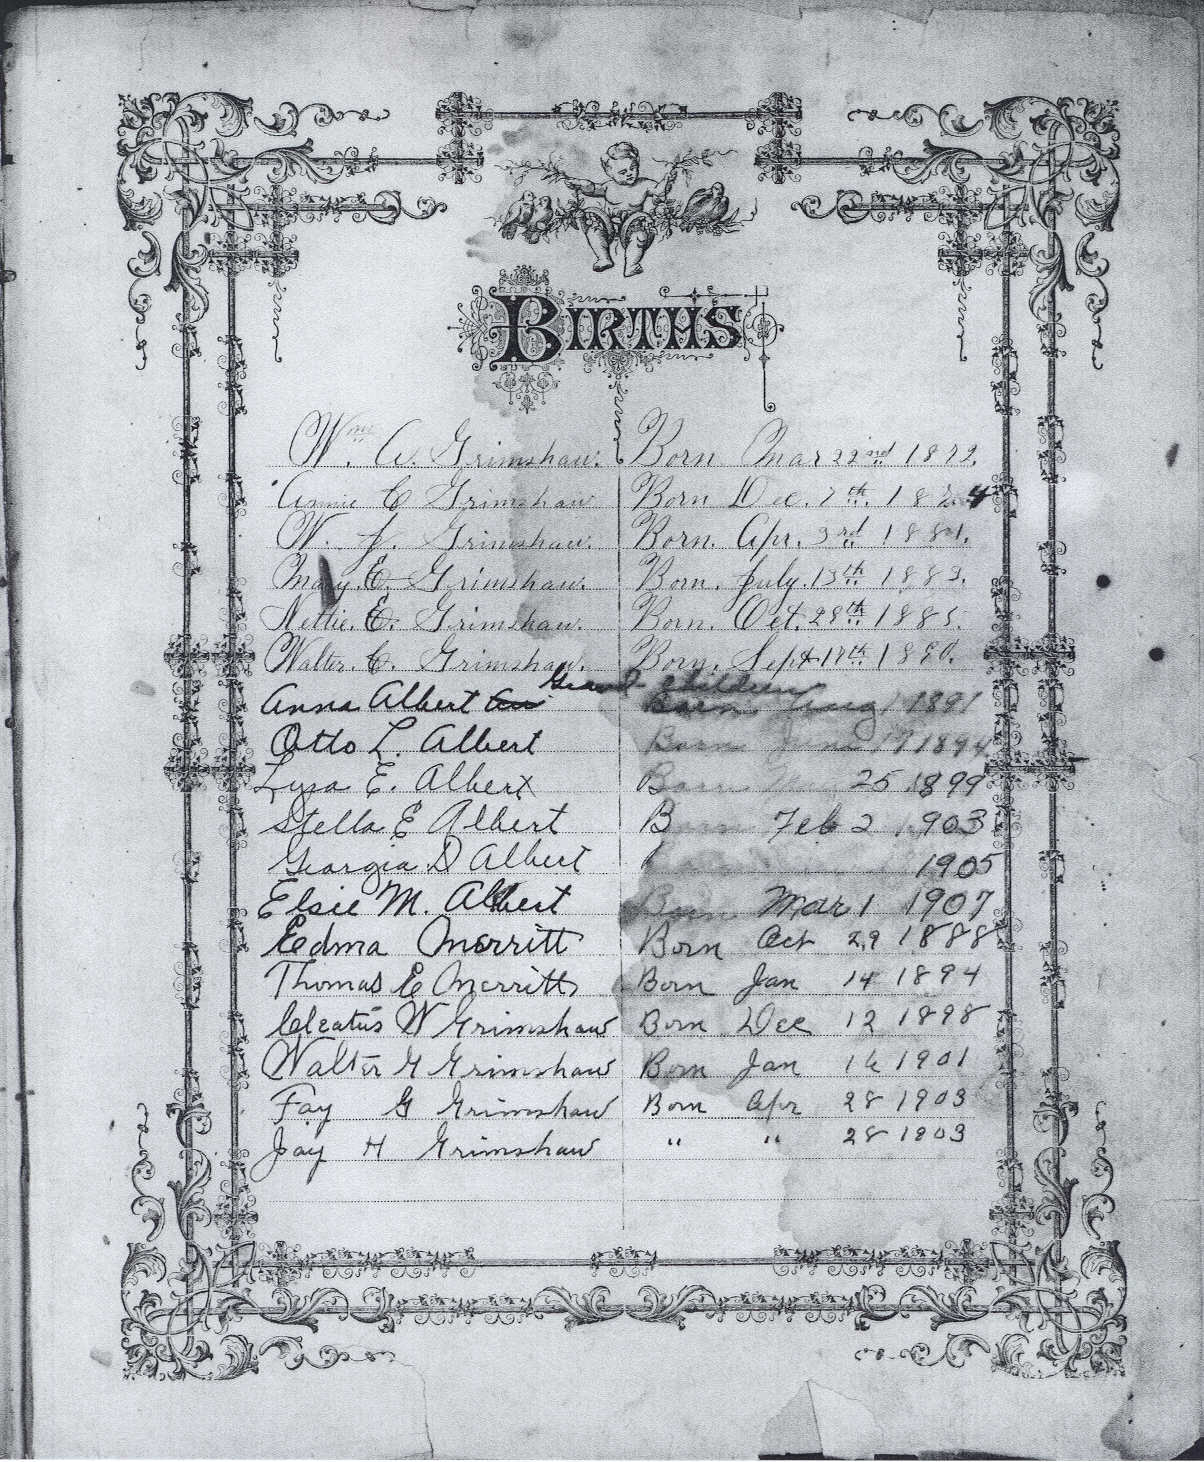 BIRTHS
Wm. A. Grimshaw. Born Mar 22nd 1872.
Annie C Grimshaw Born Dec. 7th. 1874
W. J. Grimshaw. Born. Apr. 3rd 1881.
Mary. E. Grimshaw. Born. July. 13th 1883.
Nettie. E. Grimshaw. Born. Oct. 28th 1885.
Walter. C. Grimshaw. Born. Sept 18th 1890.
Grand children
Anna Albert Born Aug 1 1891
Otto L. Albert Born June 17 1894
Lyra E. Albert Born 25 1899
Stella E Albert Born Feb 2 1903
Georgia D Albert 1905
Elsie M. Albert Born Mar 1 1907
Edma Merritt Born Oct 29 1888
Thomas E Merritt Born Jan 14 1894
Cleatus W Grimshaw Born Dec 12 1898
Walter G Grimshaw Born Jan 16 1901
Fay G Grimshaw Born Apr 28 1903
Jay H Grimshaw " " 28 1903